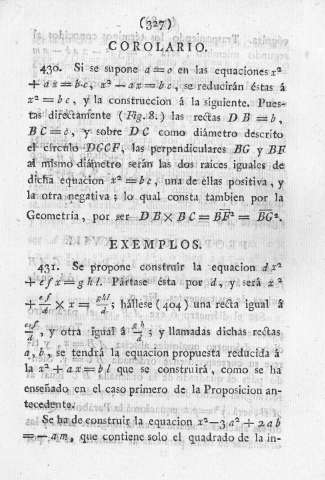 (327)
COROLARIO.
430. Si se supone a=o en las equaciones x²
+ax=bc, x²-ax=bc, se reducirán éstas á
x²=bc, y la construccion á la siguiente. Pues-
tas directamente (Fig. 8.) las rectas DB=b,
BC=c, y sobre DC como diámetro descrito
el círculo DGCF, las perpendiculares BG y BF
al mismo diámetro serán las dos raices iguales de
dicha equacion x²=bc, una de ellas positiva, y
la otra negativa; lo qual consta tambien por la
Geometría, por ser DB×BC=BF²=BG².
EXEMPLOS.
431. Se propone construir la equacion dx²
+efx=ghl. Pártase ésta por d, y será x²
+ef/d × x = ghl/d; hállese (404) una recta igual á
ef/d, y otra igual á gh/d; y llamadas dichas rectas
a, b, se tendrá la equacion propuesta reducida á
la x²+ax=bl que se construirá, como se ha
enseñado en el caso primero de la Proposicion an-
tecedente.
Se ha de construir la equacion x²-3a²+2ab
=-am, que contiene solo el quadrado de la in-